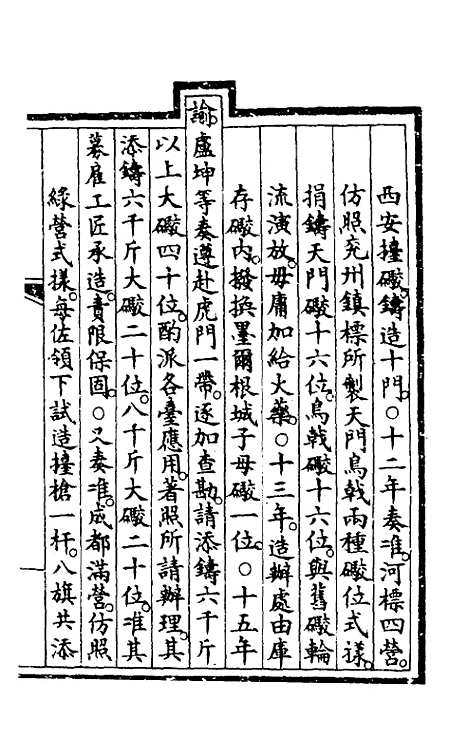 西安擡礮。鑄造十門。○十二年奏准。河標四營。
仿照兗州鎮標所製天門鳥戟兩種礮位式樣。
捐鑄天門礮十六位。鳥戟礮十六位。與舊礮輪
流演放。毋庸加給火藥。○十三年。造辦處由庫
存礮內。撥換墨爾根城子母礮一位。○十五年
諭。盧坤等奏遵赴虎門一帶。逐加查勘。請添鑄六千斤
以上大礮四十位。酌派各臺應用。著照所請辦理。其
添鑄六千斤大礮二十位。八千斤大礮二十位。准其
募雇工匠承造。責限保固。○又奏准。成都滿營。仿照
綠營式樣。每佐領下試造擡槍一杆。八旗共添